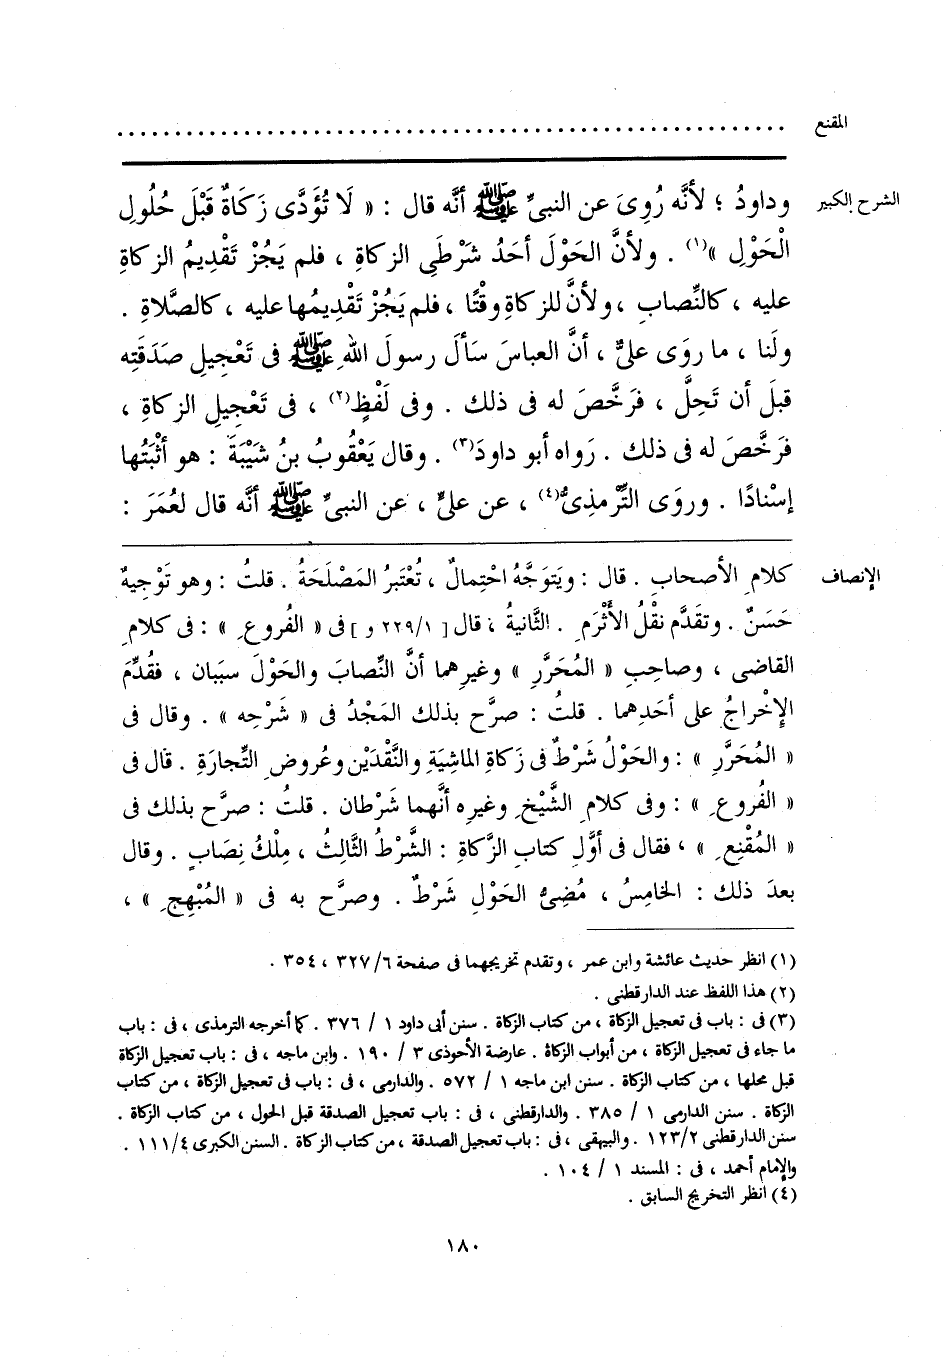 المقنع ................................................................
الشرح الكبير وداودُ ؛ لأنَّه رُوِىَ عن النبىِّ ﷺ أنَّه قال : « لَا تُؤَدَّى زَكَاةٌ قَبْلَ حُلُولِ
الْحَوْلِ »(١) . ولأنَّ الحَوْلَ أحَدُ شَرْطَىِ الزكاةِ ، فلم يَجُزْ تَقْدِيمُ الزكاةِ
عليه ، كالنِّصابِ ، ولأنَّ للزكاةِ وقْتًا ، فلم يَجُزْ تَقْدِيمُها عليه ، كالصَّلاةِ .
ولَنا ، ما روَى علىٌّ ، أنَّ العباسَ سَألَ رسولَ اللهِ ﷺ فى تَعْجِيلِ صَدَقَتِه
قبلَ أن تَحِلَّ ، فَرَخَّصَ له فى ذلك . وفى لَفْظٍ(٢) ، فى تَعْجِيلِ الزكاةِ ،
فرَخَّصَ له فى ذلك . رَواه أبو داودَ(٣) . وقال يَعْقُوبُ بنُ شَيْبَةَ : هو أثْبَتُها
إسْنادًا . وروَى التِّرْمِذىُّ(٤) ، عن علىٍّ ، عن النبىِّ ﷺ أنَّه قال لعُمَرَ :
الإنصاف كلامِ الأصحابِ . قال : ويَتوَجَّهُ احْتِمالٌ ، تُعْتَبرُ المَصْلَحَةُ . قلتُ : وهو تَوْجِيهٌ
حَسَنٌ . وتقَدَّم نقْلُ الأَثْرَمِ . الثَّانيةُ ، قال [ ٢٢٩/١ و ] فى « الفُروعِ » : فى كلامِ
القاضى ، وصاحِبِ « المُحَرَّرِ » وغيرِهما أنَّ النِّصابَ والحَوْلَ سبَبان ، فقُدِّمَ
الإِخْراجُ على أحَدِهما . قلتُ : صرَّح بذلك المَجْدُ فى « شَرْحِه » . وقال فى
« المُحَرَّرِ » : والحَوْلُ شَرْطٌ فى زَكاةِ الماشِيَةِ والنَّقْدَيْن وعُروضِ التِّجارَةِ . قال فى
« الفُروعِ » : وفى كلامِ الشَّيْخِ وغيرِه أنَّهما شَرْطان . قلتُ : صرَّح بذلك فى
« المُقْنِعِ » ، فقال فى أوَّلِ كتابِ الزَّكاةِ : الشَّرْطُ الثَّالِثُ ، مِلْكُ نِصَابٍ . وقال
بعدَ ذلك : الخامِسُ ، مُضِىُّ الحَوْلِ شَرْطٌ . وصرَّح به فى « المُبْهِجِ » ،
(١) انظر حديث عائشة وابن عمر ، وتقدم تخريجهما فى صفحة ٣٢٧/٦ ، ٣٥٤ .
(٢) هذا اللفظ عند الدارقطنى .
(٣) فى : باب فى تعجيل الزكاة ، من كتاب الزكاة . سنن أبى داود ١ / ٣٧٦ . كما أخرجه الترمذى ، فى : باب
ما جاء فى تعجيل الزكاة ، من أبواب الزكاة . عارضة الأحوذى ٣ / ١٩٠ . وابن ماجه ، فى : باب تعجيل الزكاة
قبل محلها ، من كتاب الزكاة . سنن ابن ماجه ١ / ٥٧٢ . والدارمى ، فى : باب فى تعجيل الزكاة ، من كتاب
الزكاة . سنن الدارمى ١ / ٣٨٥ . والدارقطنى ، فى : باب تعجيل الصدقة قبل الحول ، من كتاب الزكاة .
سنن الدارقطنى ١٢٣/٢ . والبيهقى ، فى : باب تعجيل الصدقة ، من كتاب الزكاة . السنن الكبرى ١١١/٤ .
والإمام أحمد ، فى : المسند ١ / ١٠٤ .
(٤) انظر التخريج السابق .
١٨٠